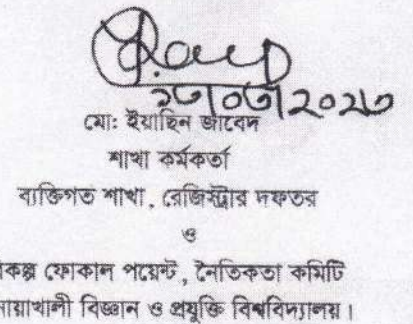 মো: ইয়াছিন জাবেদ
শাখা কর্মকর্তা
ব্যক্তিগত শাখা, রেজিস্ট্রার দফতর
ও
িকল্প ফোকাল পয়েন্ট, নৈতিকতা কমিটি
নায়াখালী বিজ্ঞান ও প্রযুক্তি বিশ্ববিদ্যালয়।